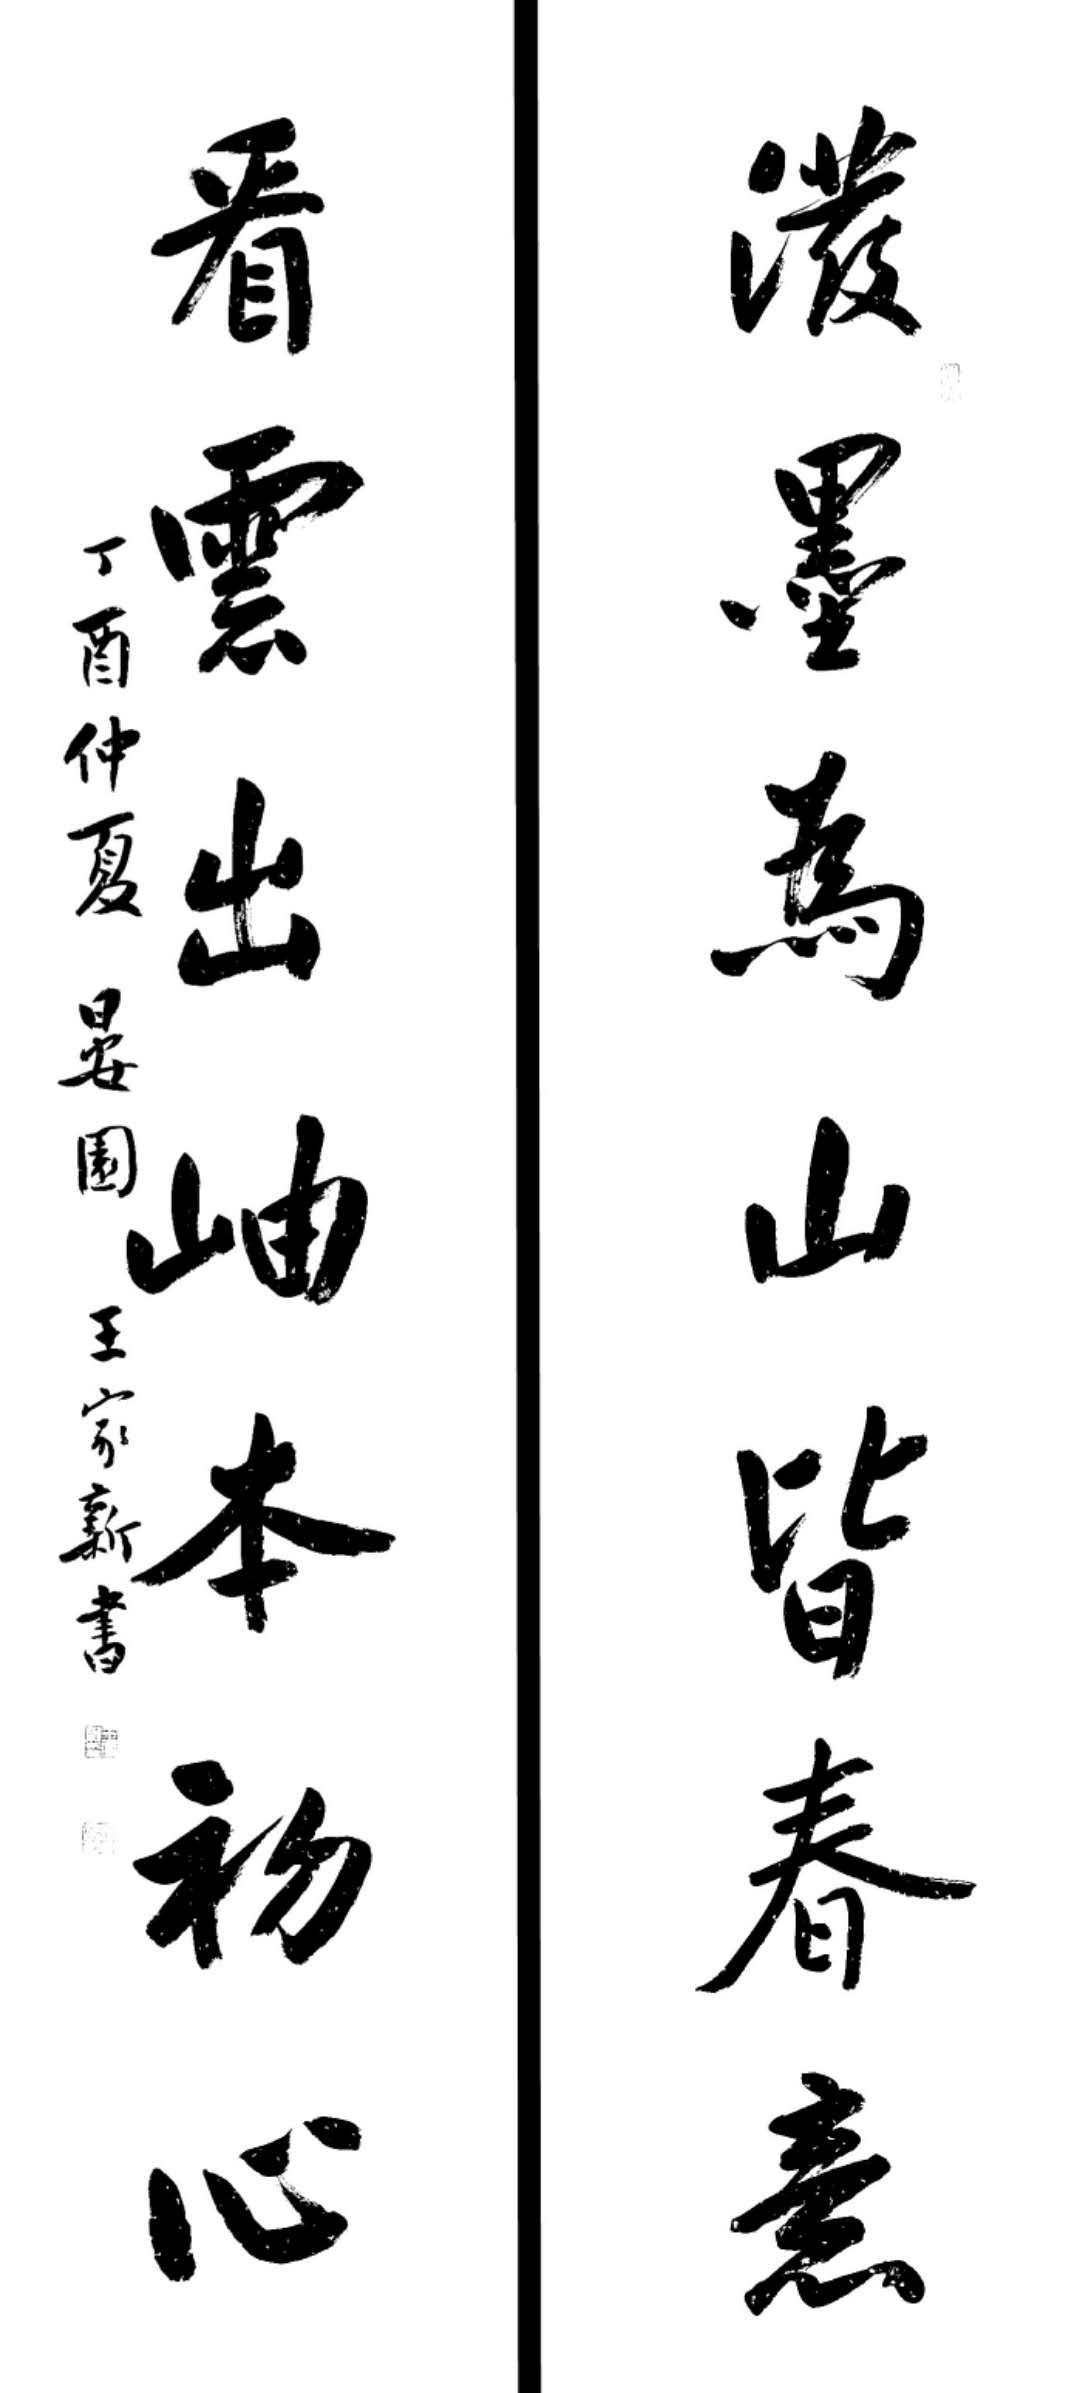 潑墨為山皆春意
看雲出岫本初心
丁酉仲夏 晏園 王家新書